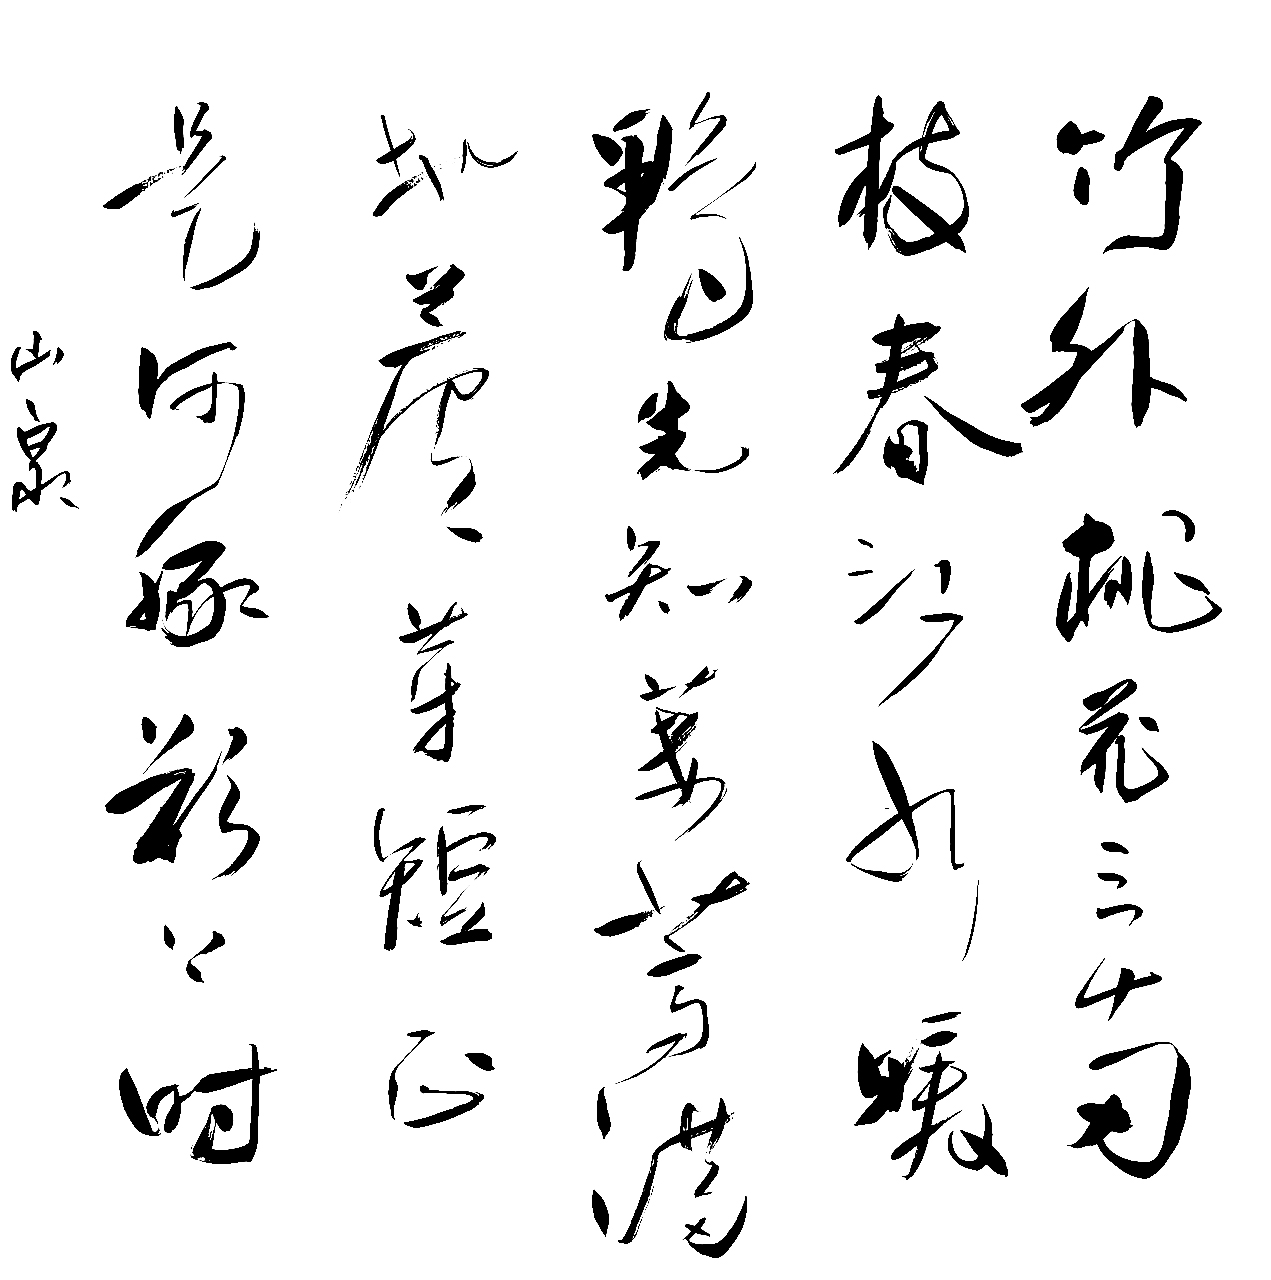 竹外桃花三兩
枝春江水暖
鴨先知蔞蒿滿
地蘆芽短正
是河豚欲上时
山泉